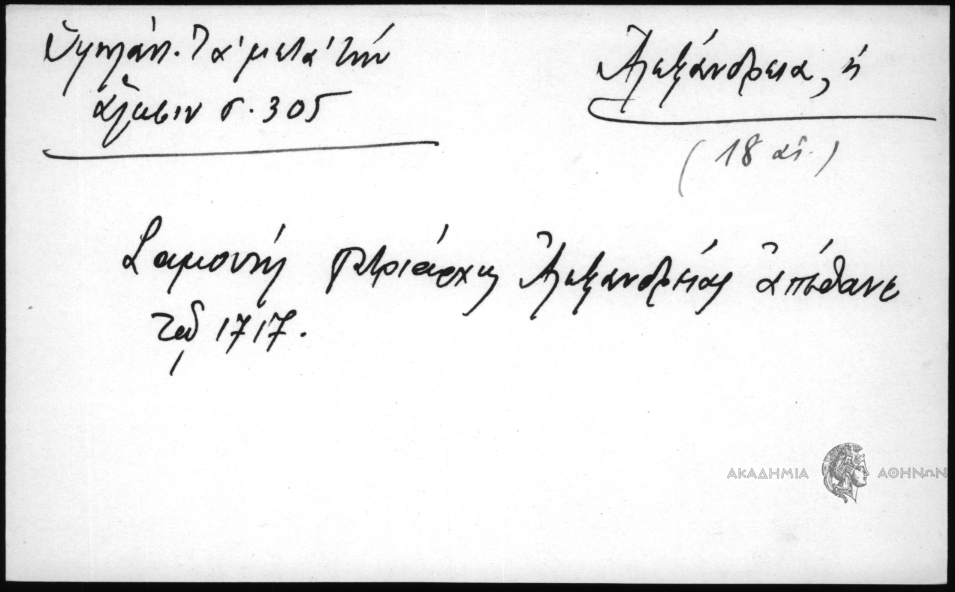 Ὑψηλάντ. Τὰ μετὰ τὴν
ἅλωσιν σ. 305
Ἀλεξάνδρεια, ἡ
(18 αἰ.)
Σαμουὴλ πατριάρχης Ἀλεξανδρείας ἀπέθανε
τῷ 1717.
ΑΚΑΔΗΜΙΑ ΑΘΗΝΩΝ